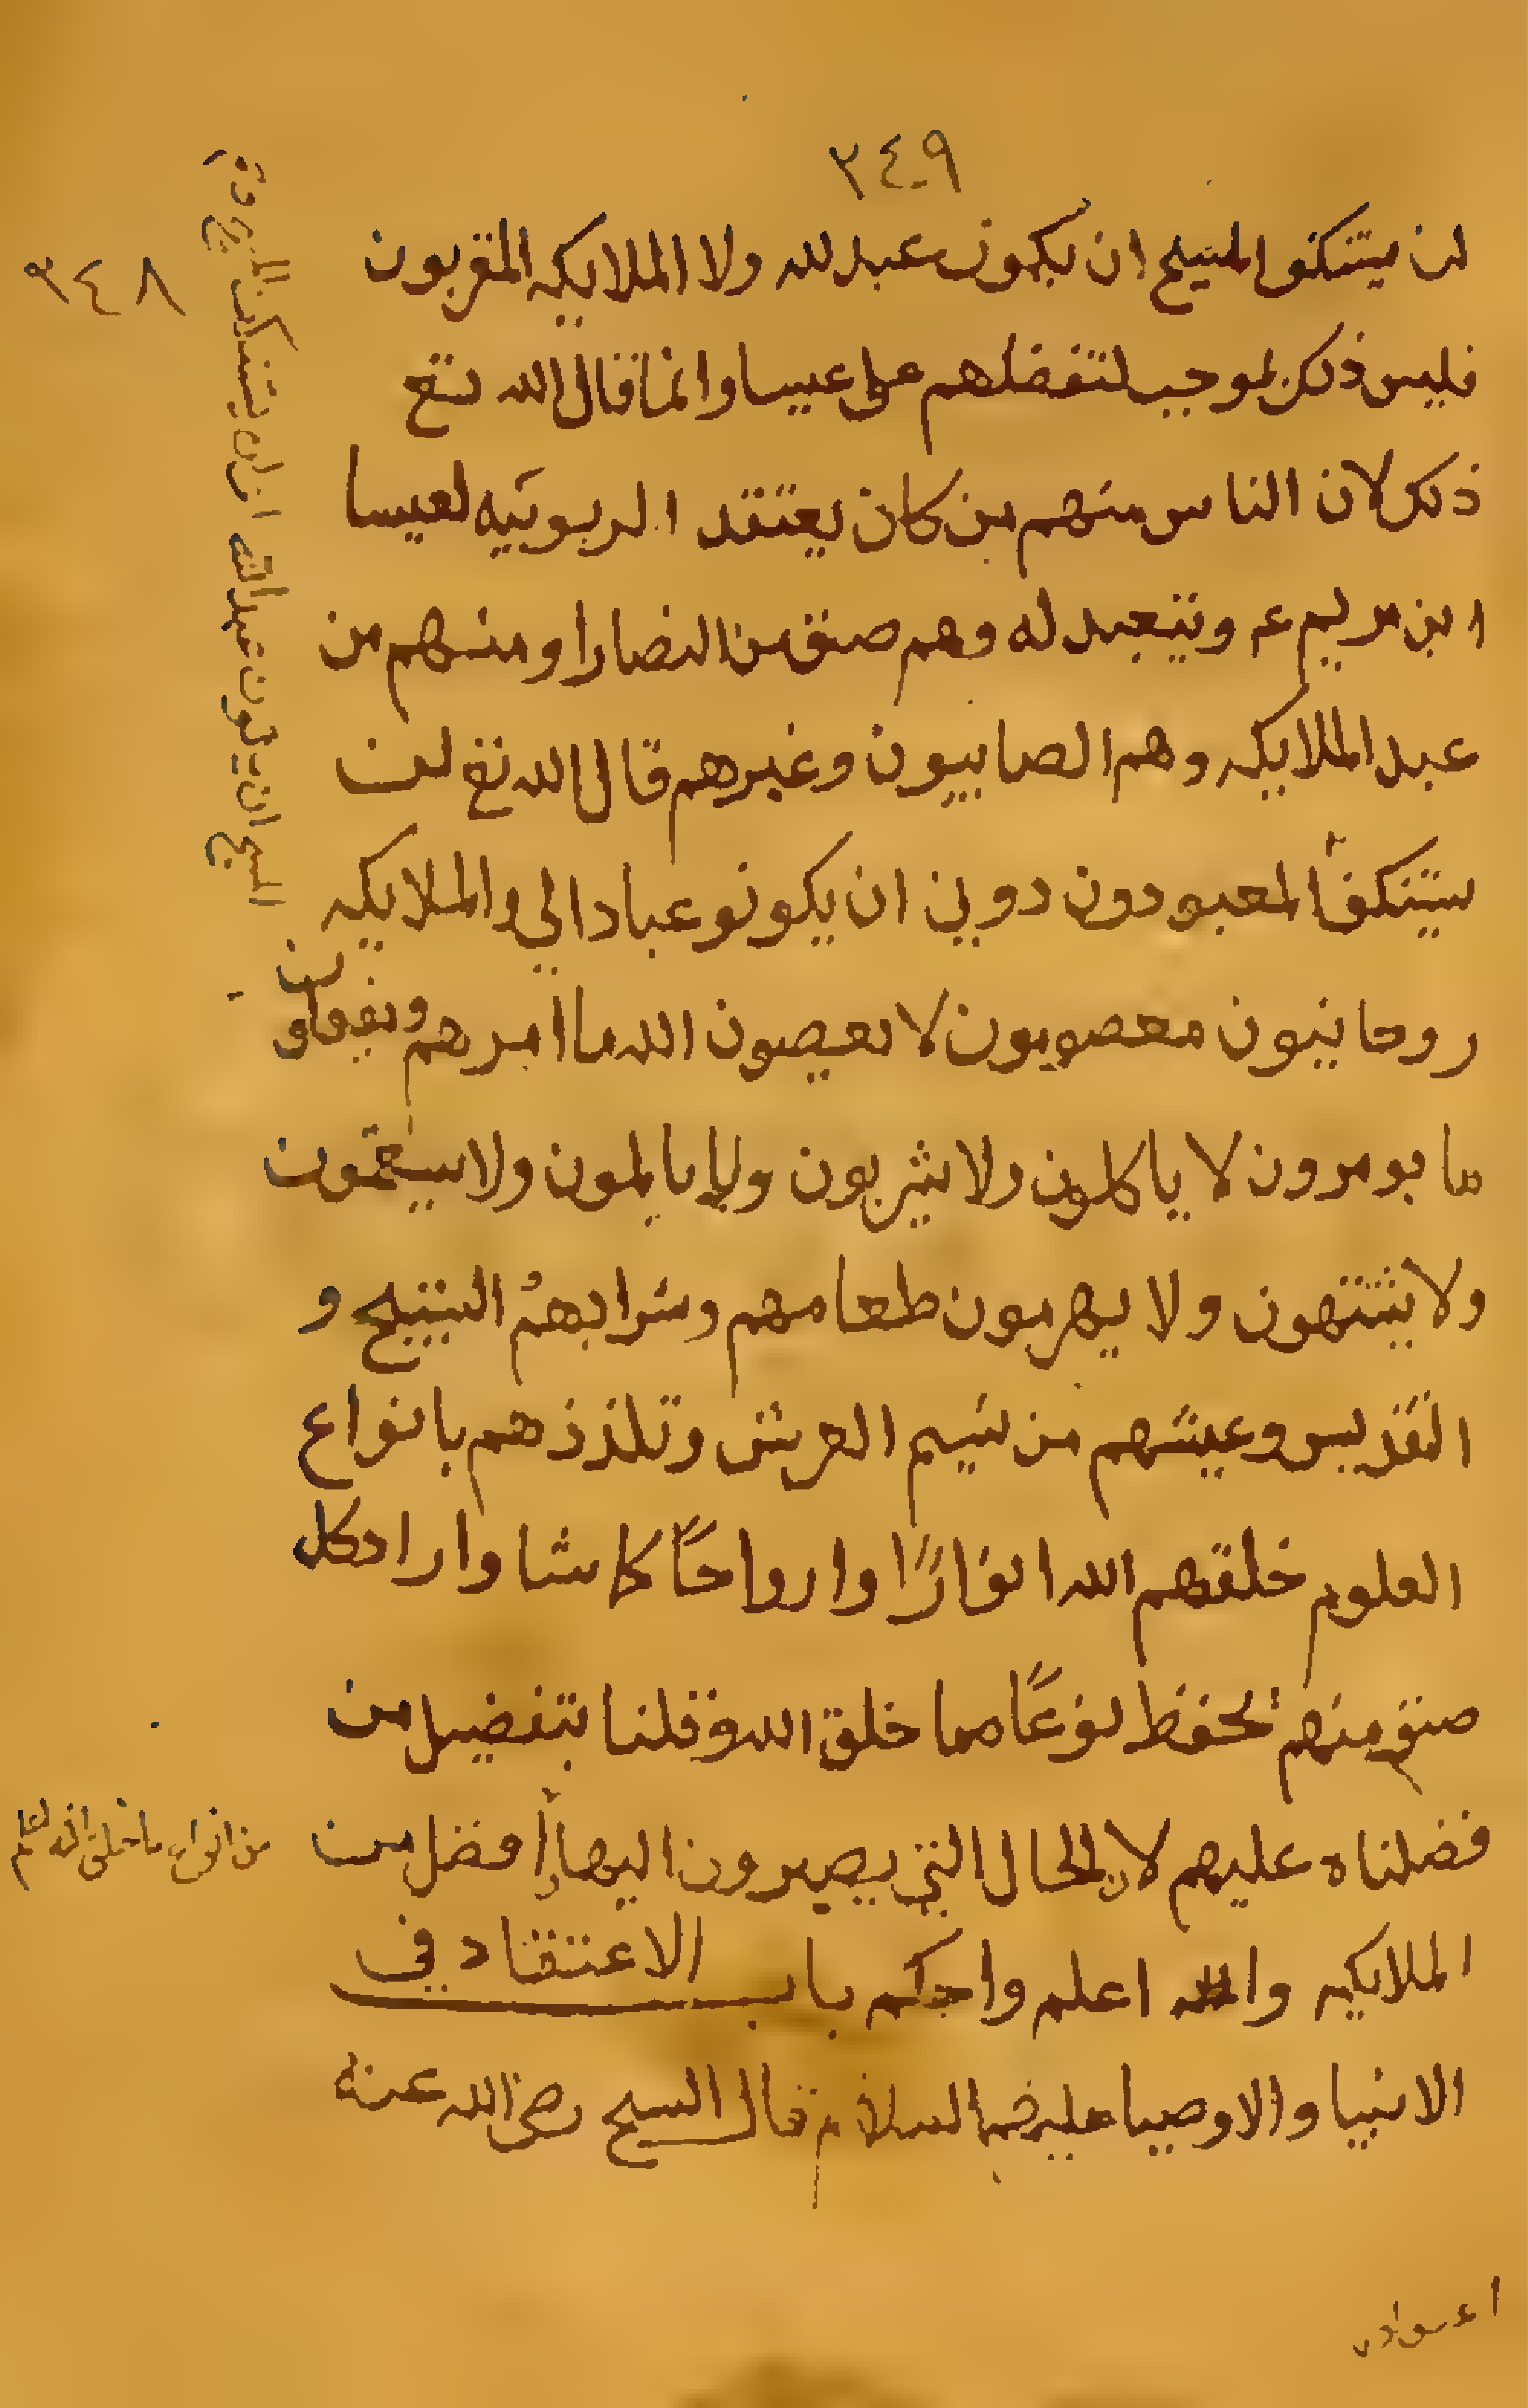 ٣٤٩
لن يستنكف المسيح ان يكون عبد لله ولا الملايكه المقربون
فليس ذلك بموجب لتفضلهم على عيسا وانما قال الله تع
ذلك لان الناس منهم من كان يعتقد الربوبيه لعيسا
ابن مريم عم ويتعبد له وهم صنف من النصارا ومنهم من
عبد الملايكه وهم الصابيون وغيرهم قال الله تع لن
يستنكف المعبودون دوني ان يكونو عبادا لي والملايكه
روحانيون معصومون لا يعصون الله ما امرهم ويفعلون
ما يومرون لا ياكلون ولا يشربون ولا يالمون ولا يسقمون
ولا يشتهون ولا يهرمون طعامهم وشرابهم التسبيح و
التقديس وعيشهم من نسيم العرش وتلذذهم بانواع
العلوم خلقهم الله انوارًا وارواحًا كما شا واراد كل
صنف منهم يحفظ نوعًا مما خلق الله وقلنا بتفضيل من
فضلناه عليهم لان الحال التي يصيرون اليها أفضل من
الملايكه والله اعلم واحكم باب الاعتقاد في
الانبيا والاوصيا عليهم السلام قال الشيخ رضي الله عنه
٣٤٨
المسيح ان يكون عبد الله
من انواع ما خلق الله